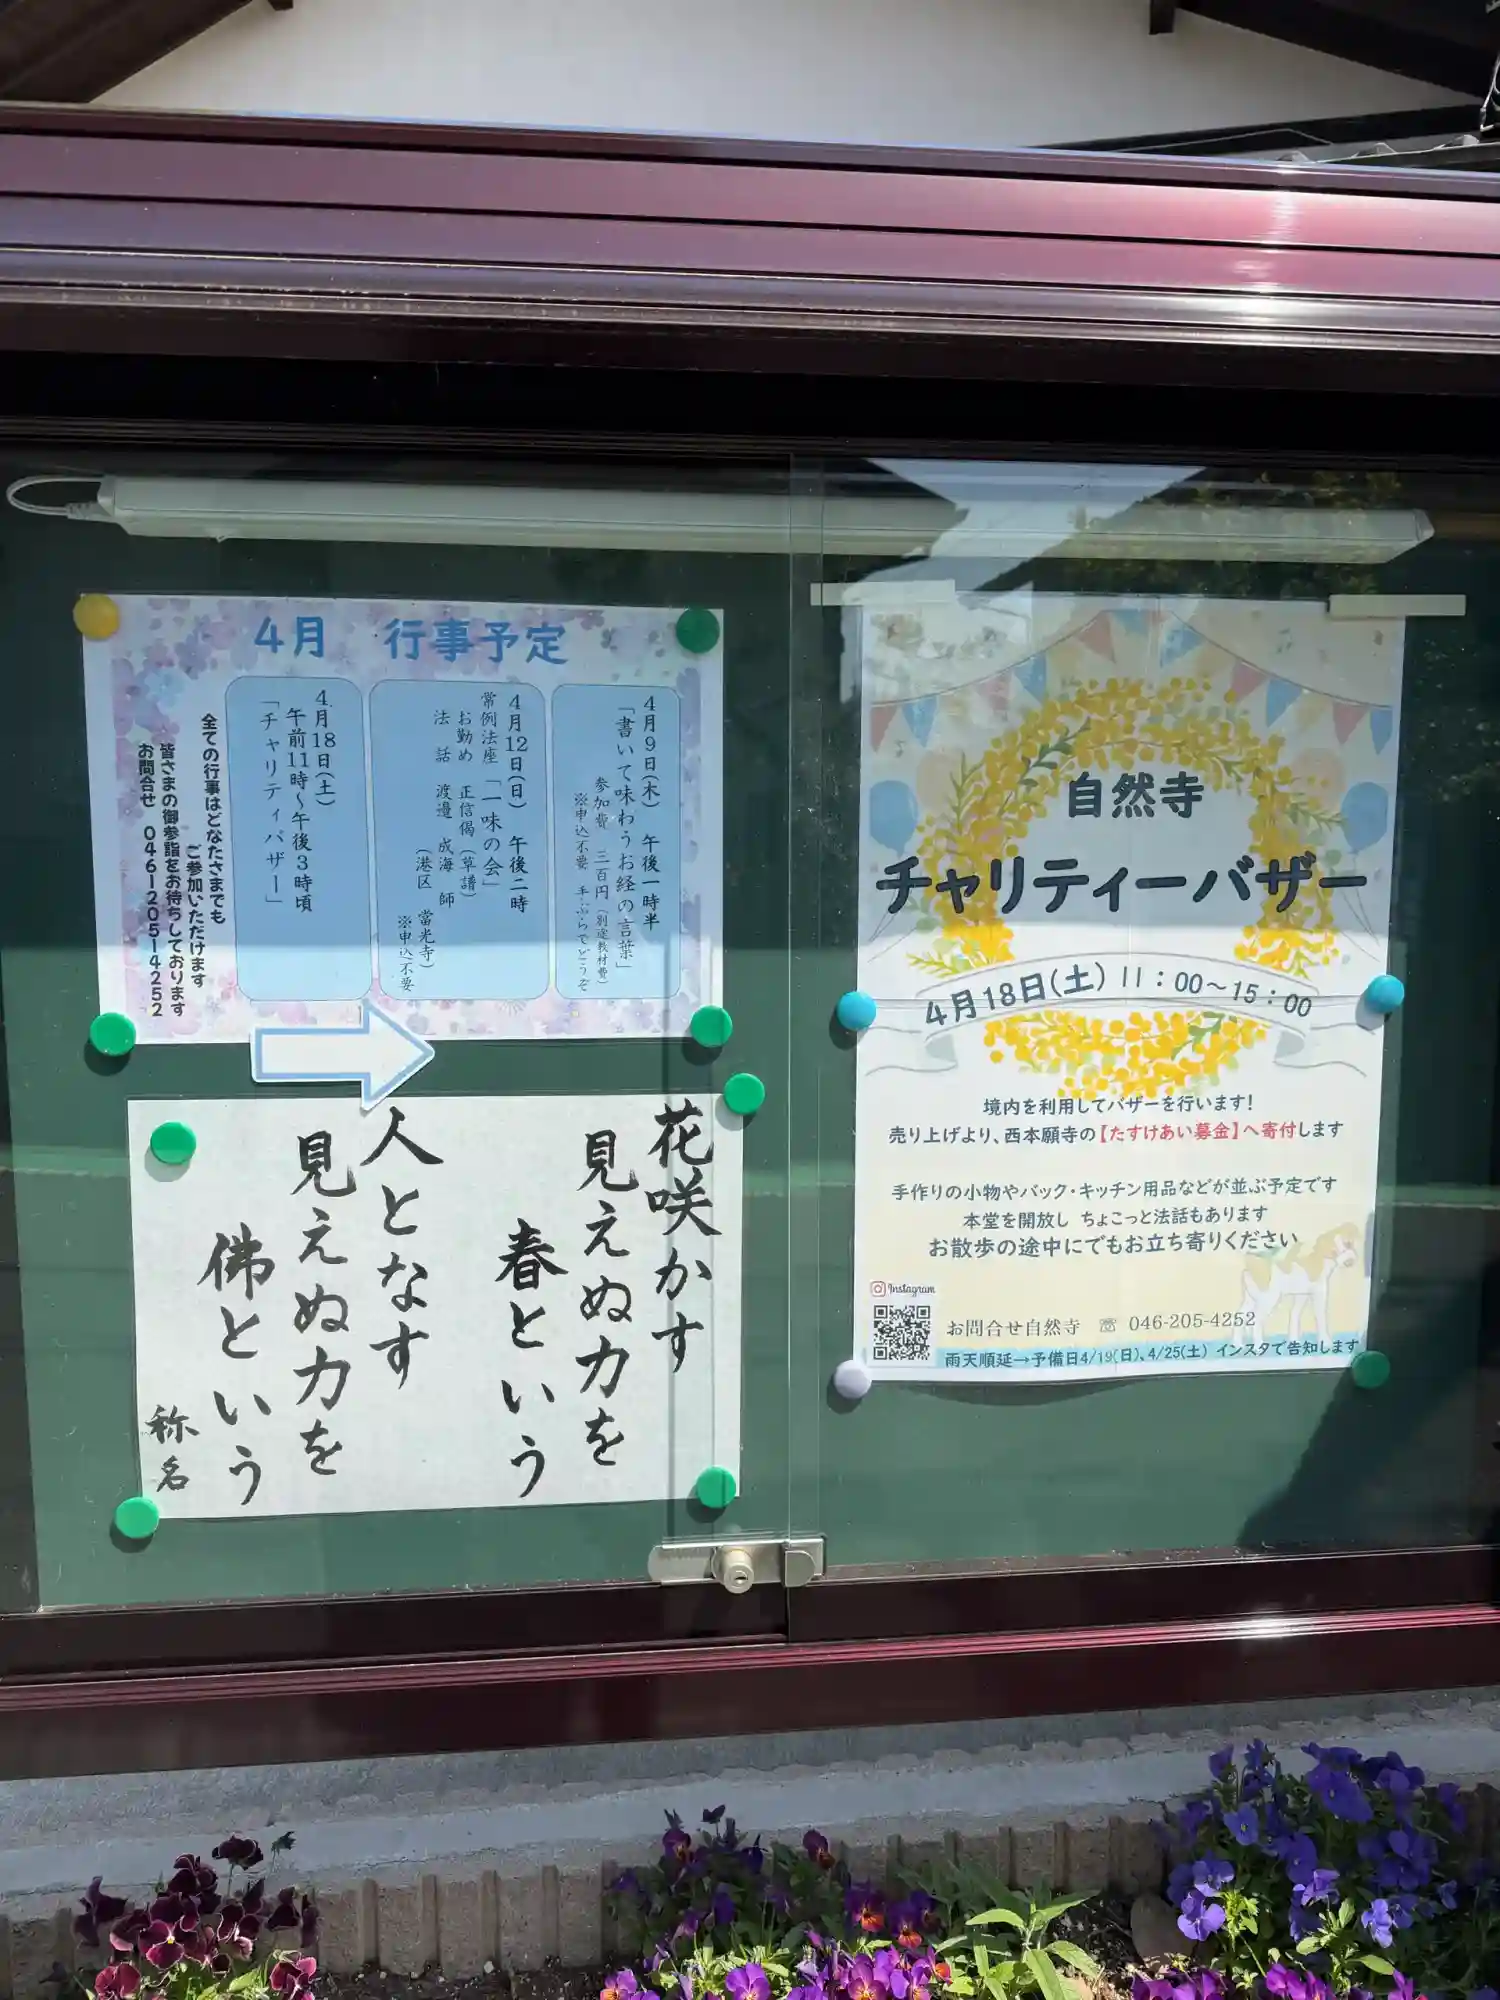 4月 行事予定
4月9日(木) 午後一時半
「書いて味わうお経の言葉」
参加費 三百円(別途教材費)
※申込不要 手ぶらでどうぞ
4月12日(日) 午後二時
常例法座「一味の会」
お勤め 正信偈(草譜)
法話 渡邉 成海 師
(港区 當光寺)
※申込不要
4月18日(土)
午前11時～午後3時頃
「チャリティバザー」
全ての行事はどなたさまでも
ご参加いただけます
皆さまの御参詣をお待ちしております
お問合せ 046-205-4252
花咲かす
見えぬ力を
春という
人となす
見えぬ力を
佛という
称名
自然寺
チャリティーバザー
4月18日(土) 11：00～15：00
境内を利用してバザーを行います!
売り上げより、西本願寺の【たすけあい募金】へ寄付します
手作りの小物やバック・キッチン用品などが並ぶ予定です
本堂を開放し ちょこっと法話もあります
お散歩の途中にでもお立ち寄りください
Instagram
お問合せ自然寺 ☏ 046-205-4252
雨天順延→予備日4/19(日)、4/25(土) インスタで告知します